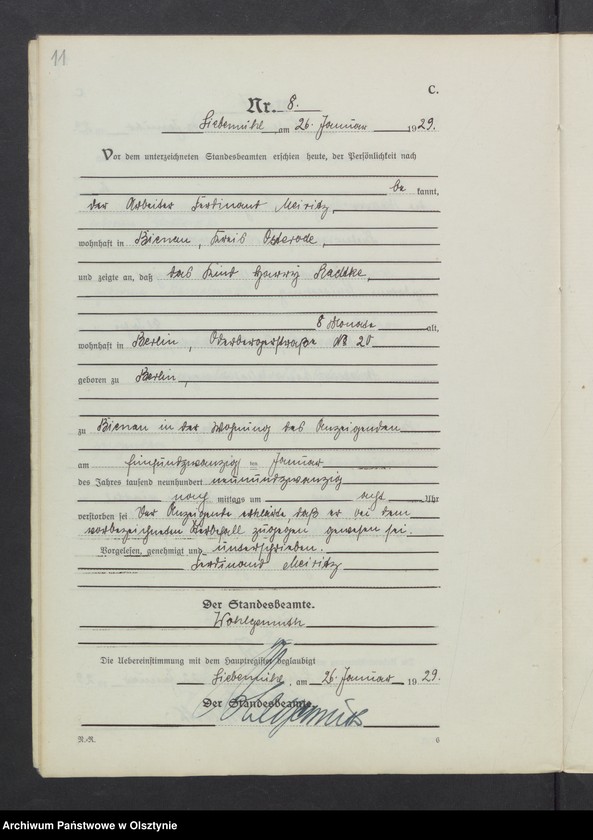 11
C.
Nr. 8.
Liebemühl am 26. Januar 1929.
Vor dem unterzeichneten Standesbeamten erschien heute, der Persönlichkeit nach
be kannt,
der Arbeiter Ferdinand Meiritz,
wohnhaft in Bienau, Kreis Osterode,
und zeigte an, daß das Kind Harry Radtke,
8 Monate alt,
wohnhaft in Berlin, Oderbergerstraße № 20
geboren zu Berlin,
zu Bienau in der Wohnung des Anzeigenden
am fünfundzwanzig ten Januar
des Jahres tausend neunhundert neunundzwanzig
nach mittags um acht Uhr
verstorben sei. Der Anzeigende erklärte, daß er bei dem
vorbezeichneten Sterbefall zugegen gewesen sei.
Vorgelesen, genehmigt und unterschrieben.
Ferdinand Meiritz
Der Standesbeamte.
Wohlgemuth
Die Uebereinstimmung mit dem Hauptregister beglaubigt
Liebemühl, am 26. Januar 1929.
Der Standesbeamte.
Wohlgemuth
R.-R.
6
Archiwum Państwowe w Olsztynie